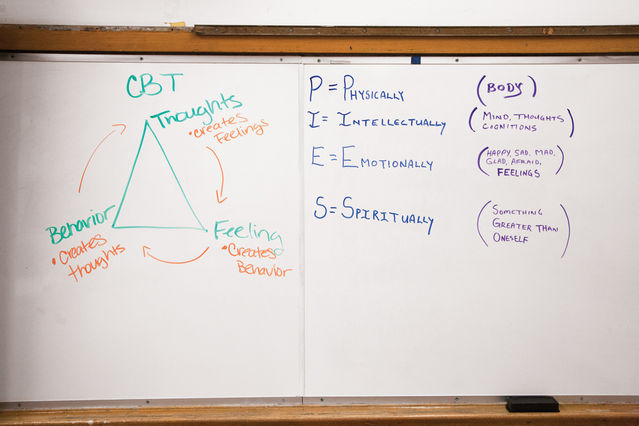 CBT
Thoughts
• creates
Feelings
Behavior
• Creates
thoughts
Feeling
• Creates
Behavior
P = PHYSICALLY (BODY)
I = INTELLECTUALLY (MIND, THOUGHTS
COGNITIONS)
E = EMOTIONALLY (HAPPY, SAD, MAD,
GLAD, AFRAID,
FEELINGS)
S = SPIRITUALLY (SOMETHING
GREATER THAN
ONESELF)